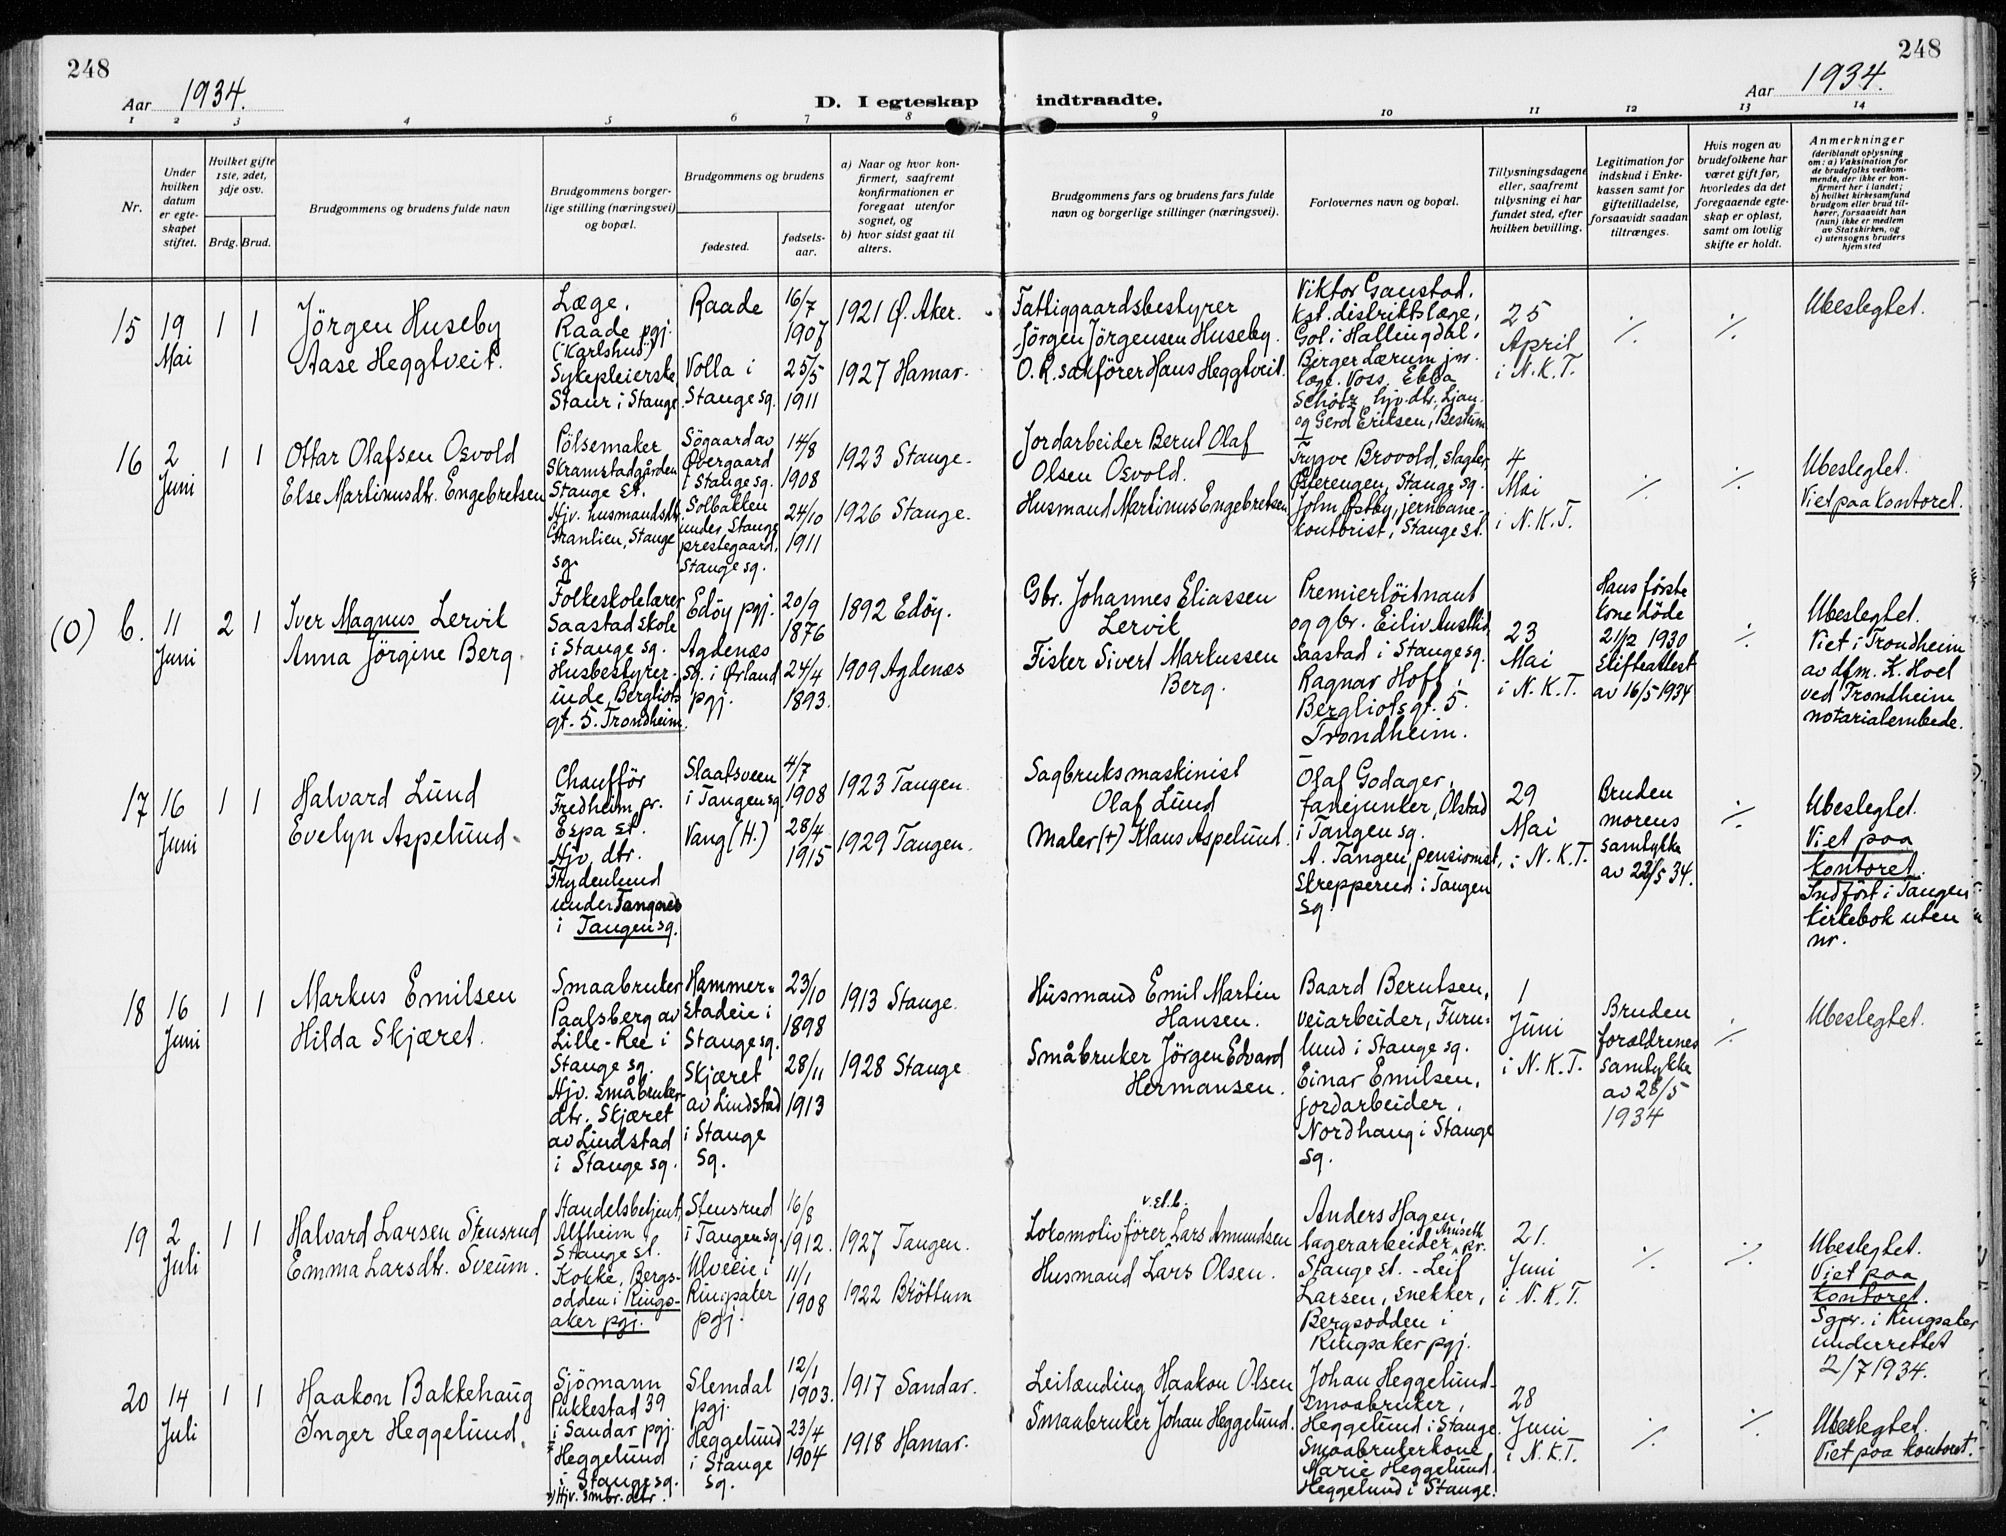 248
248
Aar 1934.
Aar 1934.
D. I egteskap indtraadte.
1 2 3 4 5 6 7 8 9 10 11 12 13 14
Nr.
Under
hvilken
datum
er egte-
skapet
stiftet.
Hvilket gifte
1ste, 2det,
3dje osv.
Brdg. Brud.
Brudgommens og brudens fulde navn
Brudgommens borger-
lige stilling (næringsvei)
og bopæl.
Brudgommens og brudens
fødested.
fødsels-
aar.
a) Naar og hvor kon-
firmert, saafremt
konfirmationen er
foregaat utenfor
sognet, og
b) hvor sidst gaat til
alters.
Brudgommens fars og brudens fars fulde
navn og borgerlige stillinger (næringsvei).
Forlovernes navn og bopæl.
Tillysningsdagene
eller, saafremt
tillysning ei har
fundet sted, efter
hvilken bevilling.
Legitimation for
indskud i Enke-
kassen samt for
giftetilladelse,
forsaavidt saadan
tiltrænges.
Hvis nogen av
brudefolkene har
været gift før,
hvorledes da det
foregaaende egte-
skap er opløst,
samt om lovlig
skifte er holdt.
Anmerkninger
(deriblandt oplysning
om: a) Vaksination for
de brudefolks vedkom-
mende, der ikke er kon-
firmert her i landet;
b) hvilket kirkesamfund
brudgom eller brud til-
hører, forsaavidt han
(hun) ikke er medlem
av Statskirken, og
c) utensogns bruders
hjemsted
15
19
Mai
1 1
Jörgen Huseby
Aase Heggtveit.
Læge,
Raade pgj.
(Karlshus)
Sykepleierske
Staur i Stange
Raade
Volla i
Stange sg.
16/7
1907
25/5
1911
1921 Ø. Aker.
1927 Hamar.
Fattiggaardsbestyrer
Jörgen Jörgensen Huseby.
O.R.sakförer Hans Heggtveit.
Viktor Gaustad,
Kst. distriktslæge,
Gol i Hallingdal.
Berger Lærum jnr.
læge. Voss. Ebba
Schötz, hjv. dtr., Ljan
og Gerd Eriksen, Bestum
25
April
i N.K.T.
%
%
Ubeslegtet.
16
2
Juni
1 1
Ottar Olafsen Osvold
Else Martinusdtr. Engebretsen
Pölsemaker
Skramstadgården
Stange st.
Hjv. husmandsdtr.
Granlien, Stange
sg.
Sögaard av
Övergaard
i Stange sg.
Solbakken
under Stange
prestegaard,
Stange sg.
14/8
1908
24/10
1911
1923 Stange.
1926 Stange.
Jordarbeider Bernt Olaf
Olsen Osvold.
Husmand Martinus Engebretsen
Trygve Brovold, slagter,
Österengen, Stange sg.
John Østby, jernbane-
kontorist, Stange st.
4
Mai
i N.K.T.
%
%
Ubeslegtet.
Viet paa kontoret.
(O) 6.
11
Juni
2 1
Iver Magnus Lervik
Anna Jörgine Berg.
Folkeskolelærer
Saastad skole
i Stange sg.
Husbestyrer-
inde, Bergliots
gt. 5. Trondheim.
Edöy pgj.
Agdenæs
sg. i Ørland
pgj.
20/9
1876
24/4
1893.
1892 Edöy.
1909 Agdenæs
Gbr. Johannes Eliassen
Lervik
Fisker Sivert Markussen
Berg.
Premierlöitnant
og gbr. Eiliv Austlid,
Saastad i Stange sg.
Ragnar Hoff,
Bergliots gt. 5.
Trondheim.
23
Mai
i N.K.T.
Hans förste
kone döde
21/2 1930
Skifteattest
av 16/5 1934
%
Ubeslegtet.
Viet i Trondheim
av dfm. K. Hoel
ved Trondheim
notarialembede.
17
16
Juni
1 1
Halvard Lund
Evelyn Aspelund.
Chaufför
Fredheim pr.
Espa st.
Hjv. dtr.
Frydenlund
under Tangnes
i Tangen sg.
Slaatsveen
i Tangen sg.
Vang (H.)
4/7
1908
28/4
1915
1923 Tangen.
1929 Tangen.
Sagbruksmaskinist
Olaf Lund
Maler (+) Klaus Aspelund.
Olaf Godager,
fanejunker, Ölstad
i Tangen sg.
A. Tangen, pensionist,
Strepperud i Tangen
sg.
29
Mai
i N.K.T.
Bruden
morens
samtykke
av 22/5 34.
%
Ubeslegtet.
Viet paa
kontoret.
Indfört i Tangen
kirkebok uten
nr.
18
16
Juni
1 1
Markus Emilsen
Hilda Skjæret.
Smaabruker
Paalsberg av
Lille-Ree i
Stange sg.
Hjv. småbruker-
dtr. Skjæret
av Lindstad
i Stange sg.
Hammer=
stadeie i
Stange sg.
Skjæret
av Lindstad
i Stange
sg.
23/10
1898
28/11
1913
1913 Stange.
1928 Stange
Husmand Emil Martin
Hansen.
Småbruker Jörgen Edvard
Hermansen.
Baard Berntsen,
veiarbeider, Furu-
lund i Stange sg.
Einar Emilsen,
jordarbeider,
Nordhaug i Stange
sg.
1
Juni
i N.K.T.
Bruden
forældrenes
samtykke
av 28/5
1934
%
Ubeslegtet.
19
2
Juli
1 1
Halvard Larsen Stensrud
Emma Larsdtr. Sveum.
Handelsbetjent,
Alfheim i
Stange st.
Kokke, Bergs-
odden i Rings-
aker pgj.
Stensrud
i Tangen sg.
Ulveeie i
Ringsaker
pgj.
16/8
1912.
11/1
1908
1927 Tangen.
1922 Bröttum
v. st. b.
Lokomotivförer Lars Amundsen
Husmand Lars Olsen.
Anders Hagen,
lagerarbeider, pr.
Stange st. - Leif
Larsen, snekker,
Bergsodden i
Ringsaker pgj.
21.
Juni
i N.K.T.
%
%
Ubeslegtet.
Viet paa
kontoret.
Sgpr. i Ringsaker
underrettet
2/7 1934.
20
14
Juli
1 1
Haakon Bakkehaug
Inger Heggelund.
Sjömann
Pukkestad 39
i Sandar pgj.
Heggelund
i Stange sg.
Hjv. smbr. dtr.
Slemdal
pgj.
Heggelund
i Stange
sg.
12/1
1903.
23/4
1904
1917 Sandar.
1918 Hamar.
Leilænding Haakon Olsen
Smaabruker Johan Heggelund.
Johan Heggelund.
Smaabruker,
Heggelund i Stange.
Smaabrukerkone
Marie Heggelund.
Heggelund i Stange.
28
Juni
i N.K.T.
%
%
Ubeslegtet.
Viet paa kontoret.